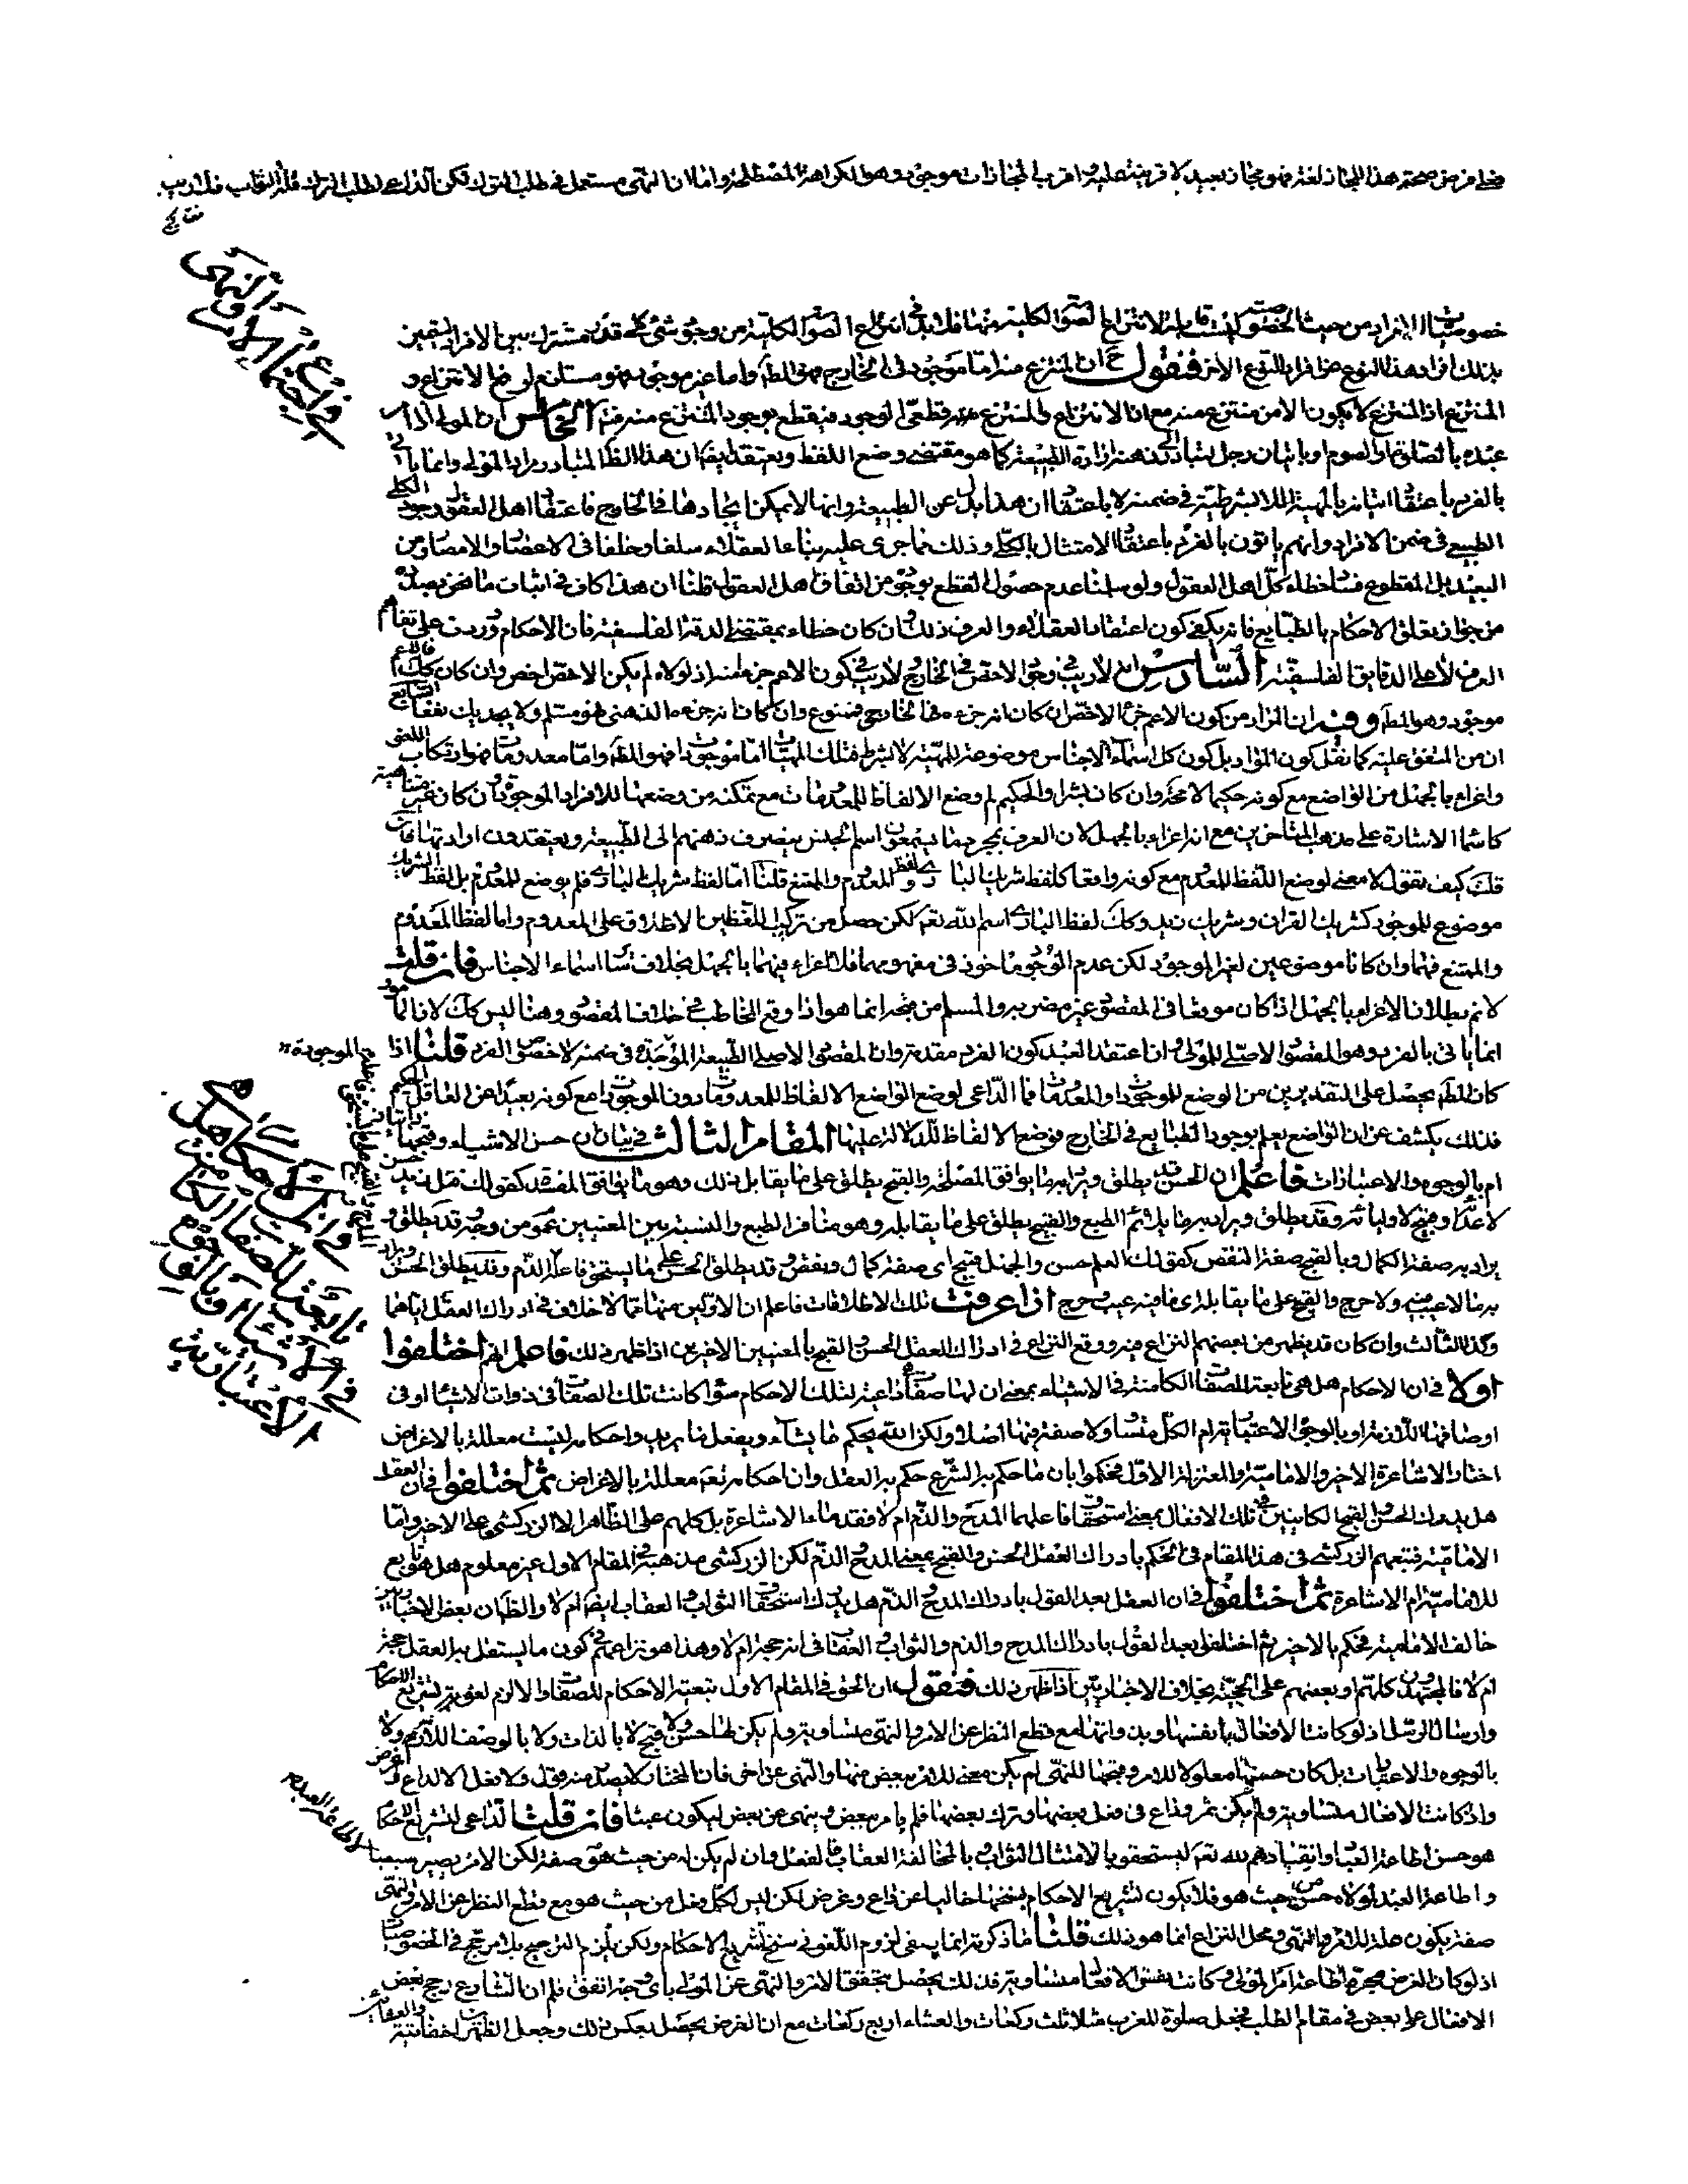 فعلى فرض صحة هذا المجاز لغة فهو مجاز بعيد لا قرينة عليه واقرب المجازات موجود وهو الكراهة المصطلحة واما لان النهى مستعمل فى طلب الترك لكن الداعى لطلب الترك قلة الثواب فلا ريب
خصوصيات الافراد من حيث الخصوصية ليست قابلة لانتزاع الصور الكلية منها فلا بد فى انتزاع الصور الكلية من وجود شئ هو قدر مشترك بين الافراد ليتميز
بذلك افراد هذا النوع عن افراد النوع الاخر فنقول ح ان المنتزع منه اما موجود فى الخارج فهو المط واما غير موجود فهو مستلزم لرفع الانتزاع و
المنتزع اذ المنتزع لا يكون الا من منتزع منه مع ان الانتزاع والمنتزع قطعى الوجود فيقطع بوجود المنتزع منه فتم الخامس ان المولى اذا امر
عبده بالصلوة او الصوم او باتيان رجل يتبادر الى ذهنه ارادة الطبيعة كما هو مقتضى وضع اللفظ ويعتقد ايضا ان هذا الفظ المتبادر مراد المولى وانما ياتى
بالفرد باعتقاد اتيانه بالمهية اللابشرطية فى ضمنه لا باعتقاد ان هذا بدل عن الطبيعة وانها لا يمكن ايجادها فى الخارج فاعتقاد اهل العقول وجود الكلى
الطبيعى فى ضمن الافراد وانهم ياتون بالفرد باعتقاد الامتثال بالكلى وذلك مما جرى عليه بناء العقلاء سلفا وخلفا فى الاعصار والامصار ومن
البعيد بل المقطوع فساده خطاء كل اهل العقول ولو سلمنا عدم حصول القطع بوجوده من اتفاق اهل العقول قلنا ان هذا كاف فى اثبات ما نحن بصدده
من جواز تعلق الاحكام بالطبايع فانه يكفى كون اعتقاد العقلاء والعرف ذلك وان كان خطاء بمقتضى الدقة الفلسفية فان الاحكام وردت على تفاهم
العرف لا على الدقايق الفلسفية السادس انه لا ريب فى وجود الاخص فى الخارج ولا ريب فى كون الاعم جزء منه اذ لولاه لم يكن الاخص اخص وان كان كك فالاعم
موجود وهو المط وفيه ان المراد من كون الاعم جزء الاخص ان كان انه جزءه فى الخارج فممنوع وان كان انه جزءه الذهنى فهو مسلم ولا يجديك نفعا السابع
ان من المتفق عليه كما نقل كون المواد بل كون كل اسماء الاجناس موضوعة للمهية لا بشرط فتلك المهيات اما موجودات فهو المط واما معدومات فهو ارتكاب اللغو
واغراء بالجهل من الواضع مع كونه حكيما لا محة وان كان بشرا والحكيم لم وضع الالفاظ للمعدومات مع تمكنه من وضعها للافراد الموجودة وان كان غير متناهية
كاسماء الاشارة على مذهب المتاخرين مع انه اغراء بالجهل لان العرف بمجرد ما يسمعون اسم الجنس ينصرف ذهنهم الى الطبيعة ويعتقدون ارادتها فان
قلت كيف تقول لا معنى لوضع اللفظ للمعدوم مع كونه واقعا كلفظ شريك البارى ولفظ المعدوم والممتنع قلنا اما لفظ شريك البارى فلم يوضع للمعدوم بل لفظ الشريك
موضوع للموجود كشريك القران وشريك زيد وكك لفظ البارى اسم الله تع لكن حصل من تركيب اللفظين الاطلاق على المعدوم واما لفظ المعدوم
والممتنع فهما وان كانا موضوعين لغير الموجود لكن عدم الوجود ماخوذ فى مفهومهما فلا اغراء فيهما بالجهل بخلاف سائر اسماء الاجناس فان قلت
لا نم بطلان الاغراء بالجهل اذا كان موقعا فى المقصود غير مضر به والمسلم من قبحه انما هو اذا وقع المخاطب فى خلاف المقصود وهنا ليس كك لان المامور
انما ياتى بالفرد وهو المقصود الاصلى للمولى وان اعتقد العبد كون الفرد مقدمة وان المقصود الاصلى الطبيعة الموجودة فى ضمنه لا خصوص الفرد قلنا اذا
كان المط يحصل على التقديرين من الوضع للموجودات او المعدومات فما الداعى لوضع الواضع الالفاظ للمعدومات دون الموجودات مع كونه بعيدا عن العاقل الحكيم
فذلك يكشف عن ان الواضع يعلم بوجود الطبايع فى الخارج فوضع الالفاظ للدلالة عليها المقام الثالث فى بيان ان حسن الاشياء وقبحها ذاتيان
ام بالوجوه والاعتبارات فاعلم ان الحسن قد يطلق ويراد به ما يوافق المصلحة والقبح يطلق على ما يقابل ذلك وهو ما يوافق المفسدة كقولك قتل زيد حسن
لاعدائه وقبيح لاوليائه وقد يطلق ويراد به ما يلائم الطبع والقبيح يطلق على ما يقابله وهو منافر الطبع والنسبة بين المعنيين عموم من وجه وقد يطلق و
يراد به صفة الكمال وبالقبح صفة النقص كقولك العلم حسن والجهل قبيح اى صفة كمال ونقص وقد يطلق الحسن على ما يستحق فاعله الذم وقد يطلق الحسن ويراد
به ما لا عيب فيه ولا حرج والقبح على ما يقابله اى ما فيه عيب وحرج اذا عرفت تلك الاطلاقات فاعلم ان الاولين منها مما لا خلاف فى ادراك العقل اياهما
وكذا الثالث وان كان قد يظهر من بعضهم النزاع فيه ووقع النزاع فى ادراك العقل الحسن والقبح بالمعنيين الاخيرين اذا ظهر ذلك فاعلم انهم اختلفوا
اولا فى ان الاحكام هل هى تابعة للصفات الكامنة فى الاشياء بمعنى ان لها صفات داعية لتلك الاحكام سواء كانت تلك الصفات فى ذوات الاشياء او فى
اوصافها اللازمة او بالوجوه والاعتبارات ام الكل متساو ولا صفة فيها اصلا ولكن الله يحكم ما يشاء ويفعل ما يريد واحكامه ليست معللة بالاغراض
اختار الاشاعرة الاخير والامامية والمعتزلة الاول فحكموا بان ما حكم به الشرع حكم به العقل وان احكامه تع معللة بالاغراض ثم اختلفوا فى ان العقل
هل يدرك الحسن والقبح الكائنين فى تلك الافعال بمعنى استحقاق فاعلهما المدح والذم ام لا فقدماء الاشاعرة بل كلهم على الظاهر الا الزركشى على الاخير واما
الامامية فتبعهم الزركشى فى هذا المقام فى الحكم بادراك العقل الحسن والقبح بمعنى المدح والذم لكن الزركشى مذهبه فى المقام الاول غير معلوم هل هو تابع
للامامية ام الاشاعرة ثم اختلفوا فى ان العقل بعد القول بادراك المدح والذم هل يدرك استحقاق الثواب والعقاب ايضا ام لا والظ ان بعض الاخباريين
خالف الامامية فحكم بالاخير ثم اختلفوا بعد القول بادراك المدح والذم والثواب والعقاب فى انه حجة ام لا وهذا هو نزاعهم فى كون ما يستقل به العقل حجة
ام لا فالمجتهدون كلهم او بعضهم على الحجية بخلاف الاخباريين اذا ظهر ذلك فنقول ان الحق فى المقام الاول تبعية الاحكام للصفات والا لزم لغوية تشريع الاحكام
وارسال الرسل اذ لو كانت الافعال بانفسها وبذواتها مع قطع النظر عن الامر والنهى متساوية ولم يكن لها حسن ولا قبح لا بالذات ولا بالوصف اللازم ولا
بالوجوه والاعتبارات بل كان حسنها معلولا للامر وقبحها للنهى لم يكن معنى للامر ببعض منها والنهى عن اخرى فان المختار لا يصدر منه قول ولا فعل الا لداع وغرض
واذا كانت الافعال متساوية ولم يكن ثم داع فى فعل بعضها وترك بعضها فلم يامر ببعض وينهى عن بعض ليكون عبثا فان قلت الداعى لتشريع الاحكام
هو حسن اطاعة العباد وانقيادهم لله تع ليستحقوا بالامتثال الثواب وبالمخالفة العقاب فالفعل وان لم يكن له من حيث هو صفة لكن الامر يصير سببا لاطاعة العبد
واطاعة العبد لمولاه حسن من حيث هو فلا يكون تشريع الاحكام بسنخها خاليا عن داع وغرض لكن ليس لكل فعل من حيث هو مع قطع النظر عن الامر والنهى
صفة يكون علة للامر والنهى ومحل النزاع انما هو ذلك قلنا ما ذكرته انما ينفى لزوم اللغو فى سنخ تشريع الاحكام ولكن يلزم الترجيح بلا مرجح فى الخصوصيات
اذ لو كان الغرض مجرد اطاعة امر المولى وكانت نفس الافعال متساوية فذلك يحصل بتحقق الامر والنهى عن المولى باى وجه اتفق فلم ان الشارع رجح بعض
الافعال على بعض فى مقام الطلب فجعل صلوة المغرب مثلا ثلث ركعات والعشاء اربع ركعات مع ان الغرض يحصل بعكس ذلك وجعل الظهرين اخفاتية